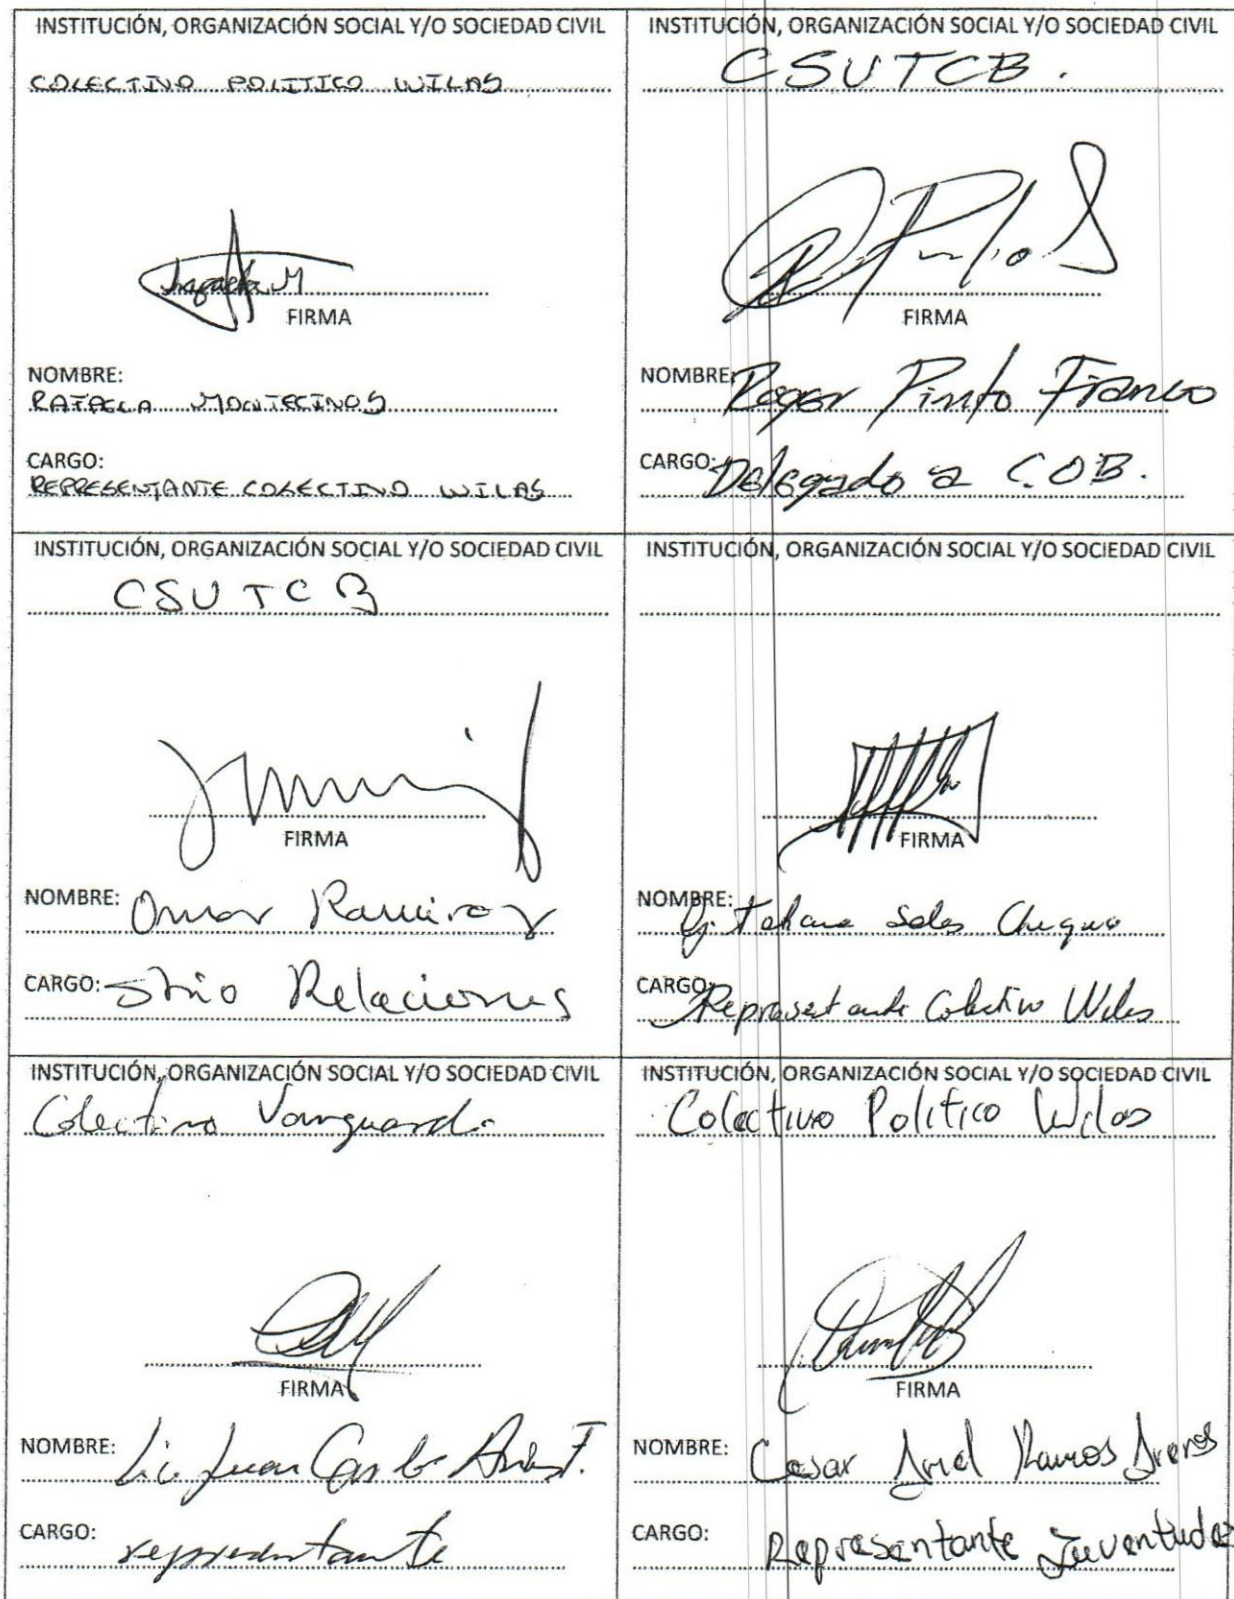 INSTITUCIÓN, ORGANIZACIÓN SOCIAL Y/O SOCIEDAD CIVIL
COLECTIVO POLITICO WILAS
Rafaella M
FIRMA
NOMBRE:
RAFAELLA MONTECINOS
CARGO:
REPRESENTANTE COLECTIVO WILAS
INSTITUCIÓN, ORGANIZACIÓN SOCIAL Y/O SOCIEDAD CIVIL
CSUTCB.
FIRMA
NOMBRE: Roger Pinto Franco
CARGO: Delegado a C.O.B.
INSTITUCIÓN, ORGANIZACIÓN SOCIAL Y/O SOCIEDAD CIVIL
CSUTCB
FIRMA
NOMBRE: Omar Ramirez
CARGO: Strio Relaciones
INSTITUCIÓN, ORGANIZACIÓN SOCIAL Y/O SOCIEDAD CIVIL
FIRMA
NOMBRE:
CARGO: Representante Colectivo Wilas
INSTITUCIÓN, ORGANIZACIÓN SOCIAL Y/O SOCIEDAD CIVIL
Colectivo Vanguardia
FIRMA
NOMBRE: Lic Juan Carlos
CARGO: representante
INSTITUCIÓN, ORGANIZACIÓN SOCIAL Y/O SOCIEDAD CIVIL
Colectivo Politico Wilas
FIRMA
NOMBRE: Cesar Ariel Ramos Arenas
CARGO: Representante Juventudes